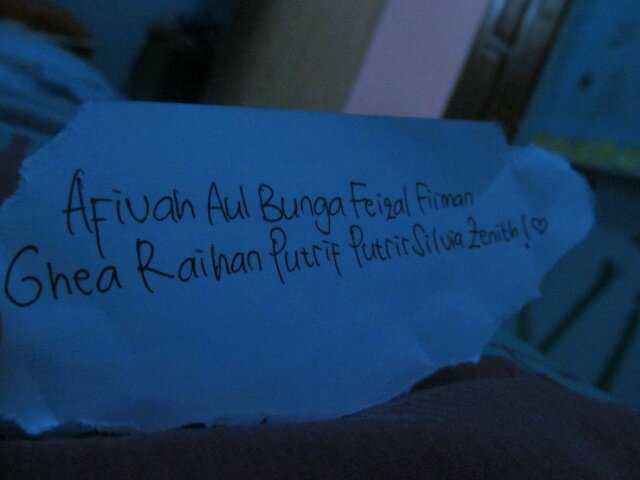 Afivah Aul Bunga Feizal Firman
Ghea Raihan Putrif Putrir Silvia Zenith! ♡